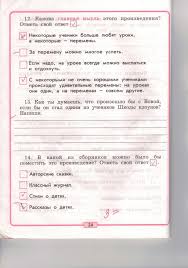 12. Какова главная мысль этого произведения?
Отметь свой ответ
Некоторые ученики больше любят уроки,
а некоторые – перемены.
За перемену можно многое успеть.
Если надо, на уроке всегда можно выспаться
и отдохнуть.
С некоторыми не очень хорошими учениками
происходят удивительные перемены: на уроке
они одни, а на перемене – совсем другие.
13. Как ты думаешь, что произошло бы с Вовой,
если бы он стал одним из учеников Школы клоунов?
Напиши.
14. В какой из сборников можно было бы
поместить это произведение? Отметь свой ответ
Авторские сказки.
Классный журнал.
Стихи о детях.
Рассказы о детях.
24